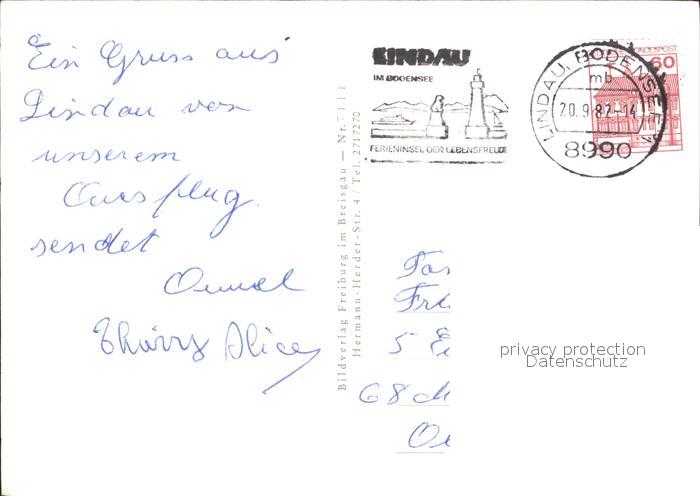 Ein Gruss aus
Lindau von
unserem
Ausflug.
sendet
LINDAU
IM BODENSEE
FERIENINSEL DER LEBENSFREUDE
LINDAU, BODENSEE
mb
20.9.82-14
8990
BUNDESPOST
60
Bildverlag Freiburg im Breisgau — Nr. 7111
Hermann-Herder-Str. 4 / Tel. 2717270
Fa
Fr
5
68
privacy protection
Datenschutz